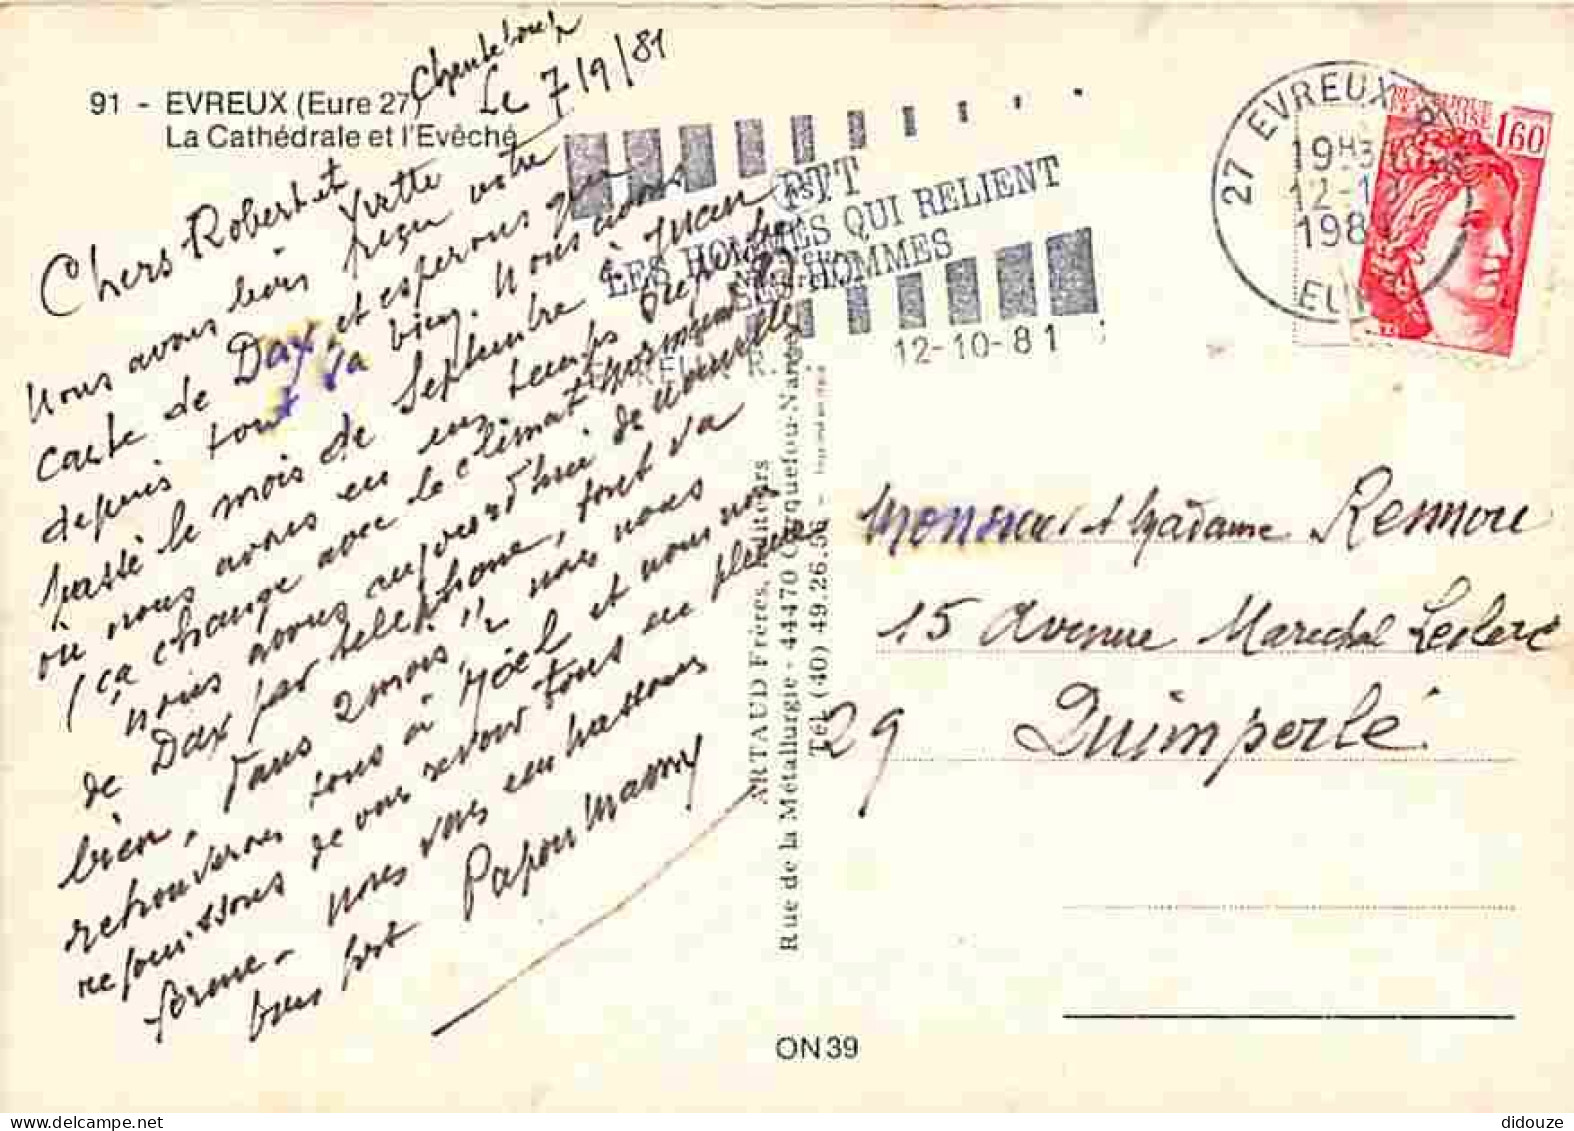 91 - EVREUX (Eure 27)
La Cathédrale et l'Evêché
Chanteloup
Le 7/9/81
Chers Robert et
Yvette
Nous avons bien reçu votre
carte de Dax, et esperons que
depuis tout va bien. Nous avons
passé le mois de Septembre à Juan
où nous avons eu un temps superbe
(ça change avec le climat normand)
nous avons aujourd'hui de nouvelle
de Dax par telephone, tout va
bien, dans 2 mois, nous nous
retrouverons tous à Noël et nous nous
rejouissons de vous revoir tous en pleine
forme - nous vous embrassons
bien fort Papou Mamy
PTT
LES HOMMES QUI RELIENT
LES HOMMES
12-10-81
27 EVREUX
19H3
12-10
1981
EURE
REPUBLIQUE
FRANÇAISE
1,60
ARTAUD Frères, Editeurs
Rue de la Métallurgie - 44470 Carquefou-Nantes
Tél. (40) 49.26.56 -
Monsieur et Madame Rennou
15 Avenue Marechal Leclerc
29 Quimperlé
ON 39
didouze